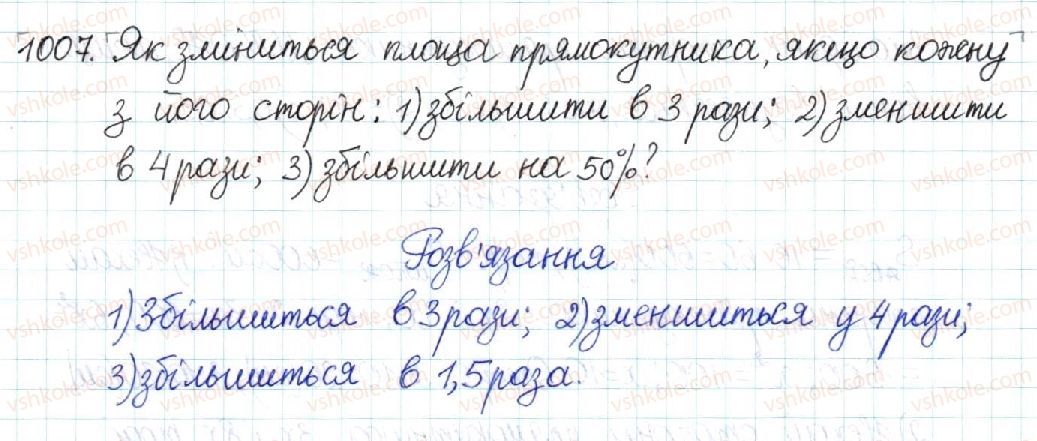 1007. Як зміниться площа прямокутника, якщо кожну
з його сторін: 1) збільшити в 3 рази; 2) зменшити
в 4 рази; 3) збільшити на 50%?
Розв'язання
1) Збільшиться в 3 рази; 2) зменшиться у 4 рази;
3) збільшиться в 1,5 раза.